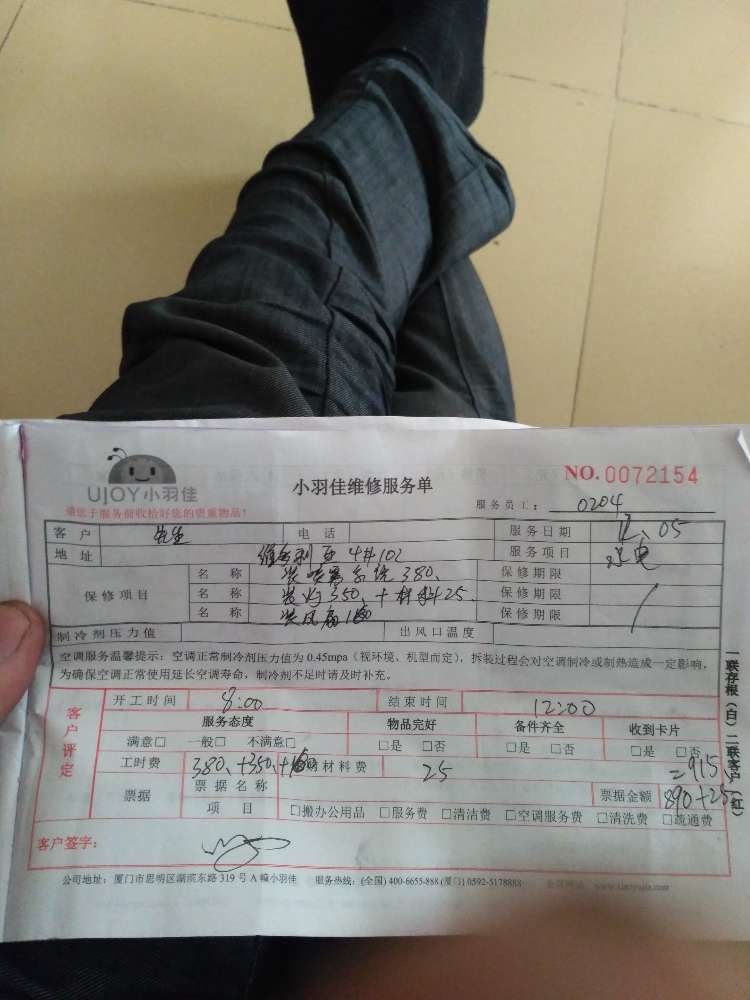 UJOY小羽佳
小羽佳维修服务单
NO.0072154
请您于服务前收拾好您的贵重物品！
服务员工： 0204
客户 先生 电话 服务日期 12、05
地址 4#102 服务项目 水电
保修项目
名称 装喷雾系统380、 保修期限
名称 装灯350、+材料25、 保修期限
名称 装风扇160 保修期限
制冷剂压力值 出风口温度
空调服务温馨提示：空调正常制冷剂压力值为 0.45mpa（视环境、机型而定），拆装过程会对空调制冷或制热造成一定影响，
为确保空调正常使用延长空调寿命，制冷剂不足时请及时补充。
客户评定
开工时间 8:00 结束时间 12:00
服务态度 物品完好 备件齐全 收到卡片
满意□ 一般□ 不满意□ □是 □否 □是 □否 □是 □否
工时费 380、+350、+160 材料费 25 =915、
票据 票据名称 票据金额 890+25
项目 □搬办公用品 □服务费 □清洁费 □空调服务费 □清洗费 □疏通费
客户签字：
公司地址：厦门市思明区湖滨东路 319 号 A 幢小羽佳 服务热线：(全国) 400-6655-888 (厦门) 0592-5178888 公司网站
一联存根（白）二联客户（红）